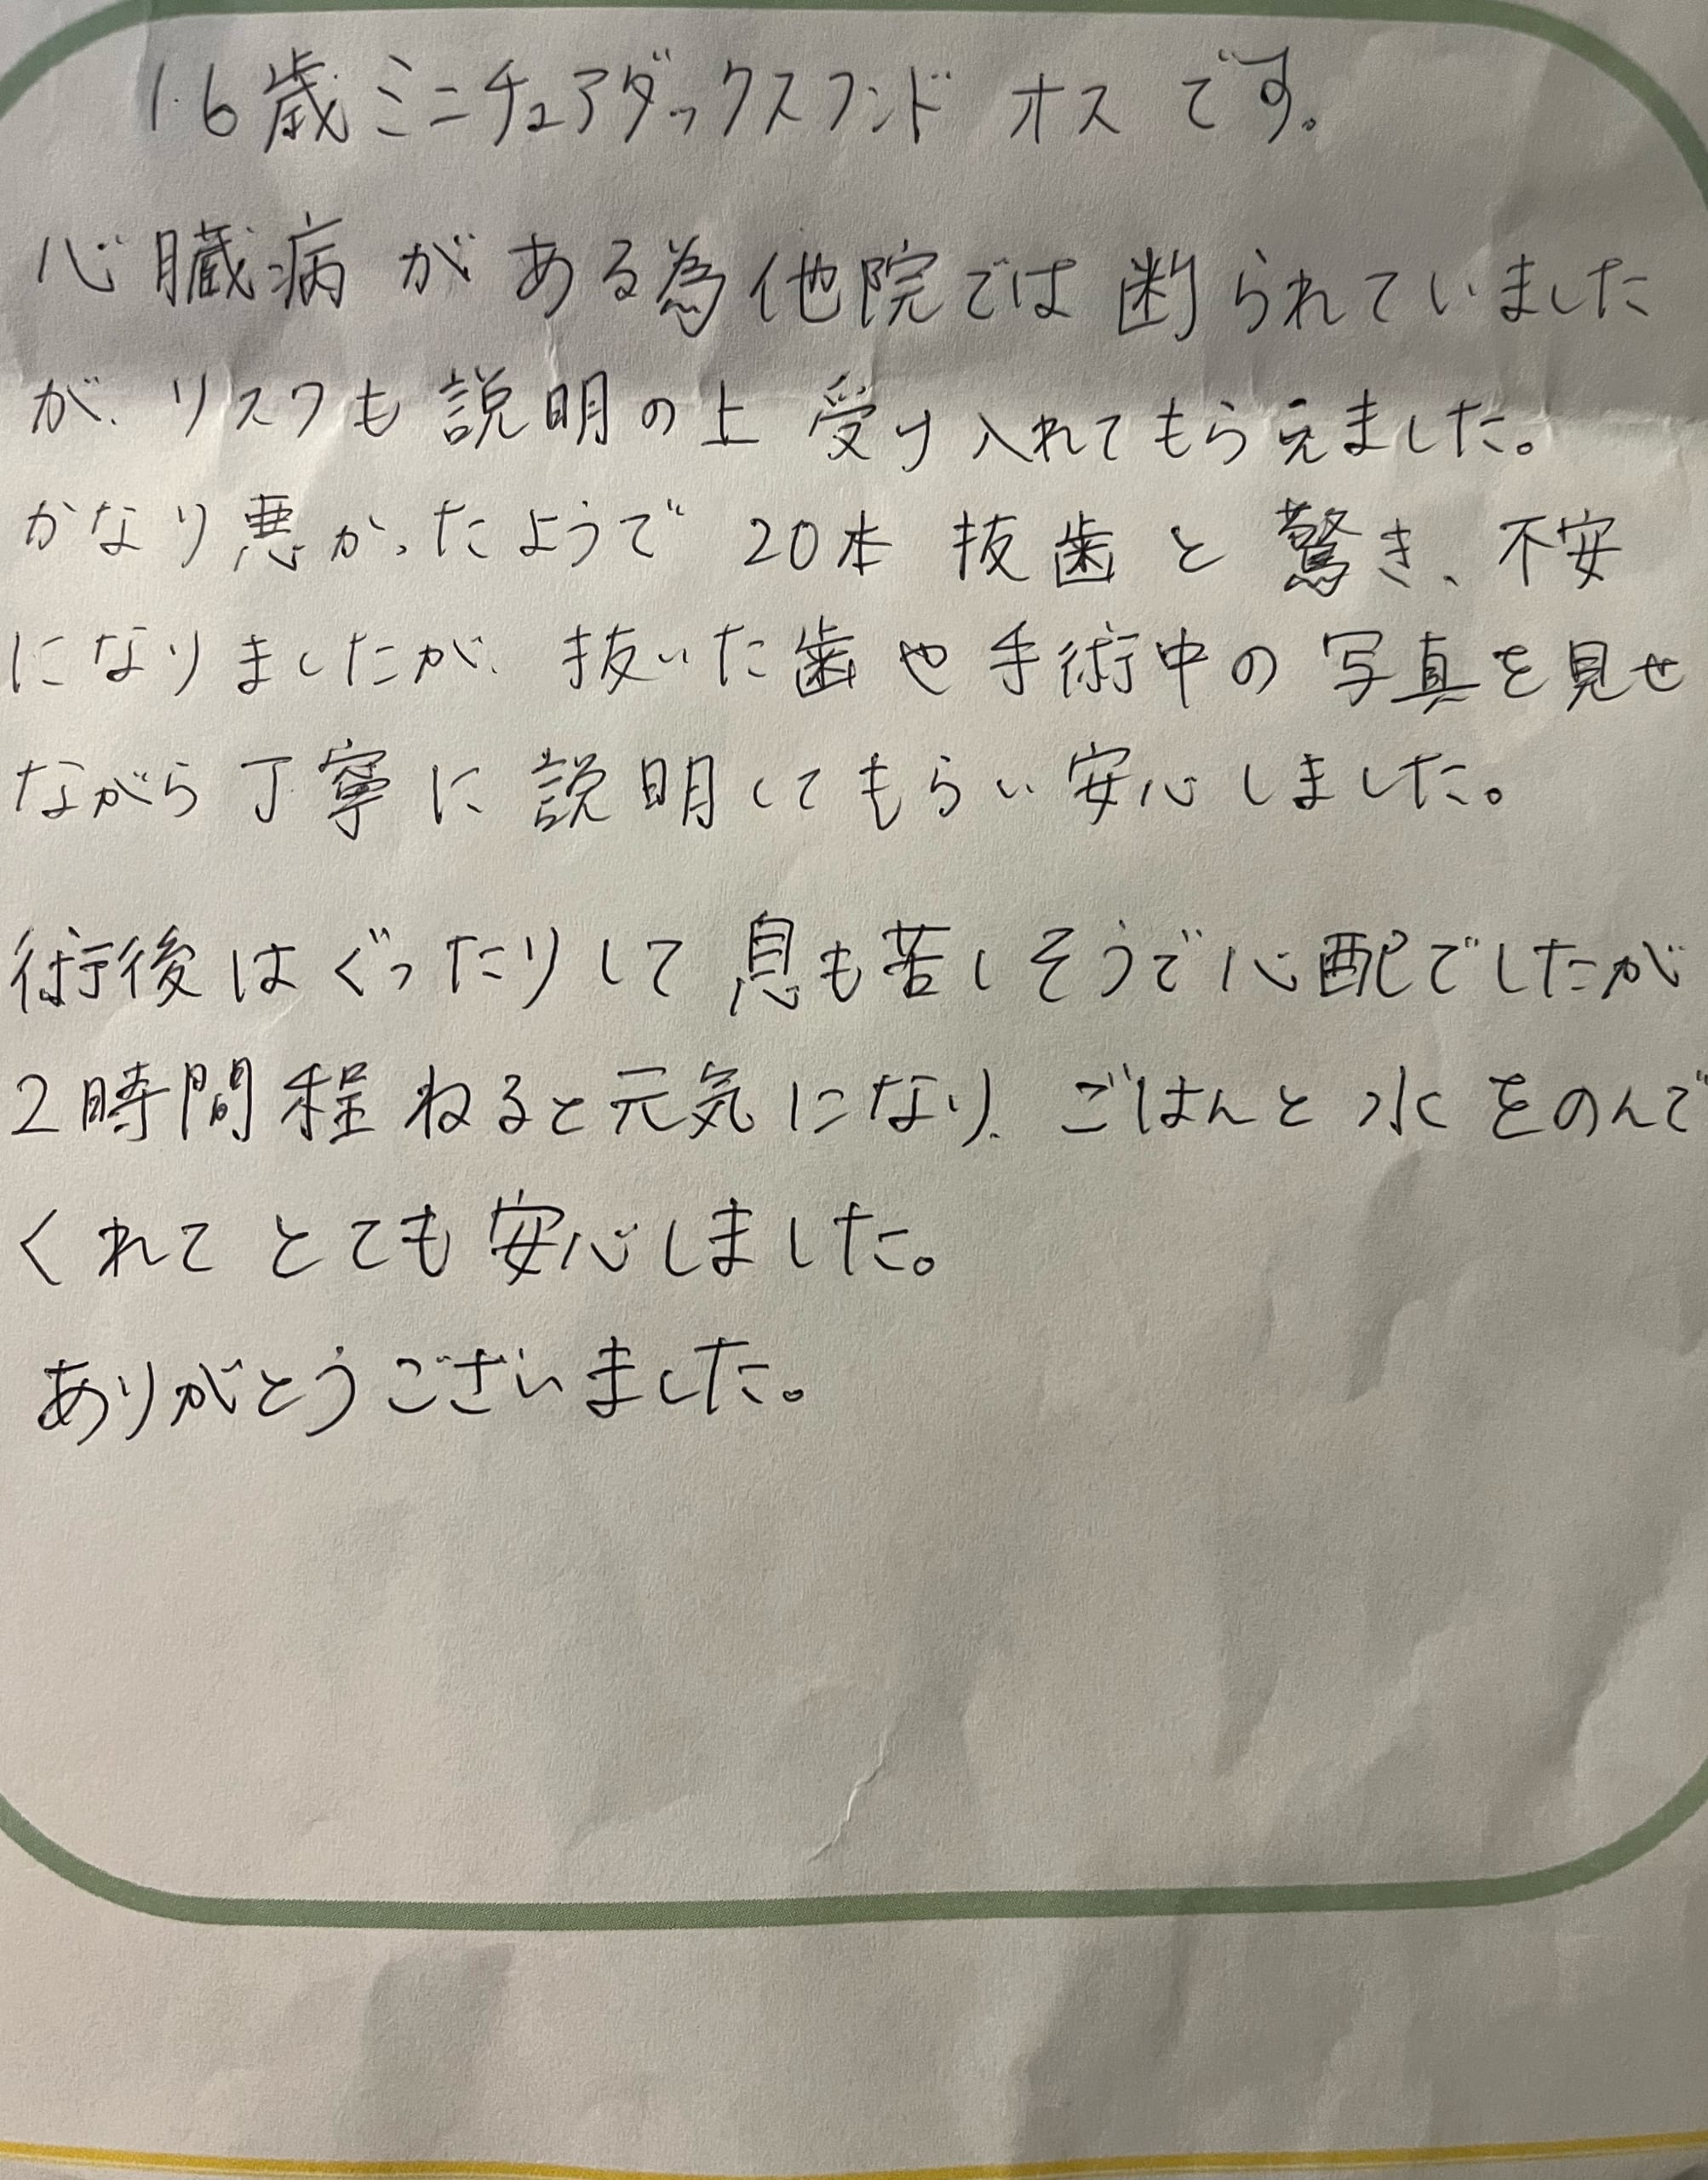 16歳ミニチュアダックスフンド オスです。
心臓病がある為他院では断られていました
が、リスクも説明の上受け入れてもらえました。
かなり悪かったようで20本抜歯と驚き、不安
になりましたが、抜いた歯や手術中の写真を見せ
ながら丁寧に説明してもらい安心しました。
術後はぐったりして息も苦しそうで心配でしたが
2時間程ねると元気になり、ごはんと水をのんで
くれてとても安心しました。
ありがとうございました。